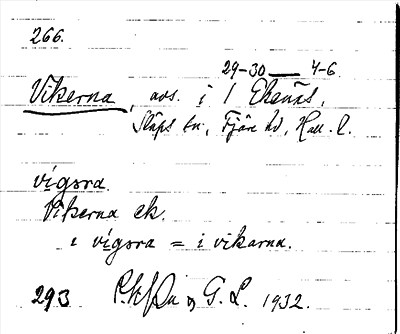 266.
29-30 — 4-6.
Vikerna, avs. i 1 Ekenäs,
Släps sn, Fjäre hd, Hall. l.
vígsra.
Vikerna ek.
i vígsra = i vikarna.
293 G. L. 1932.